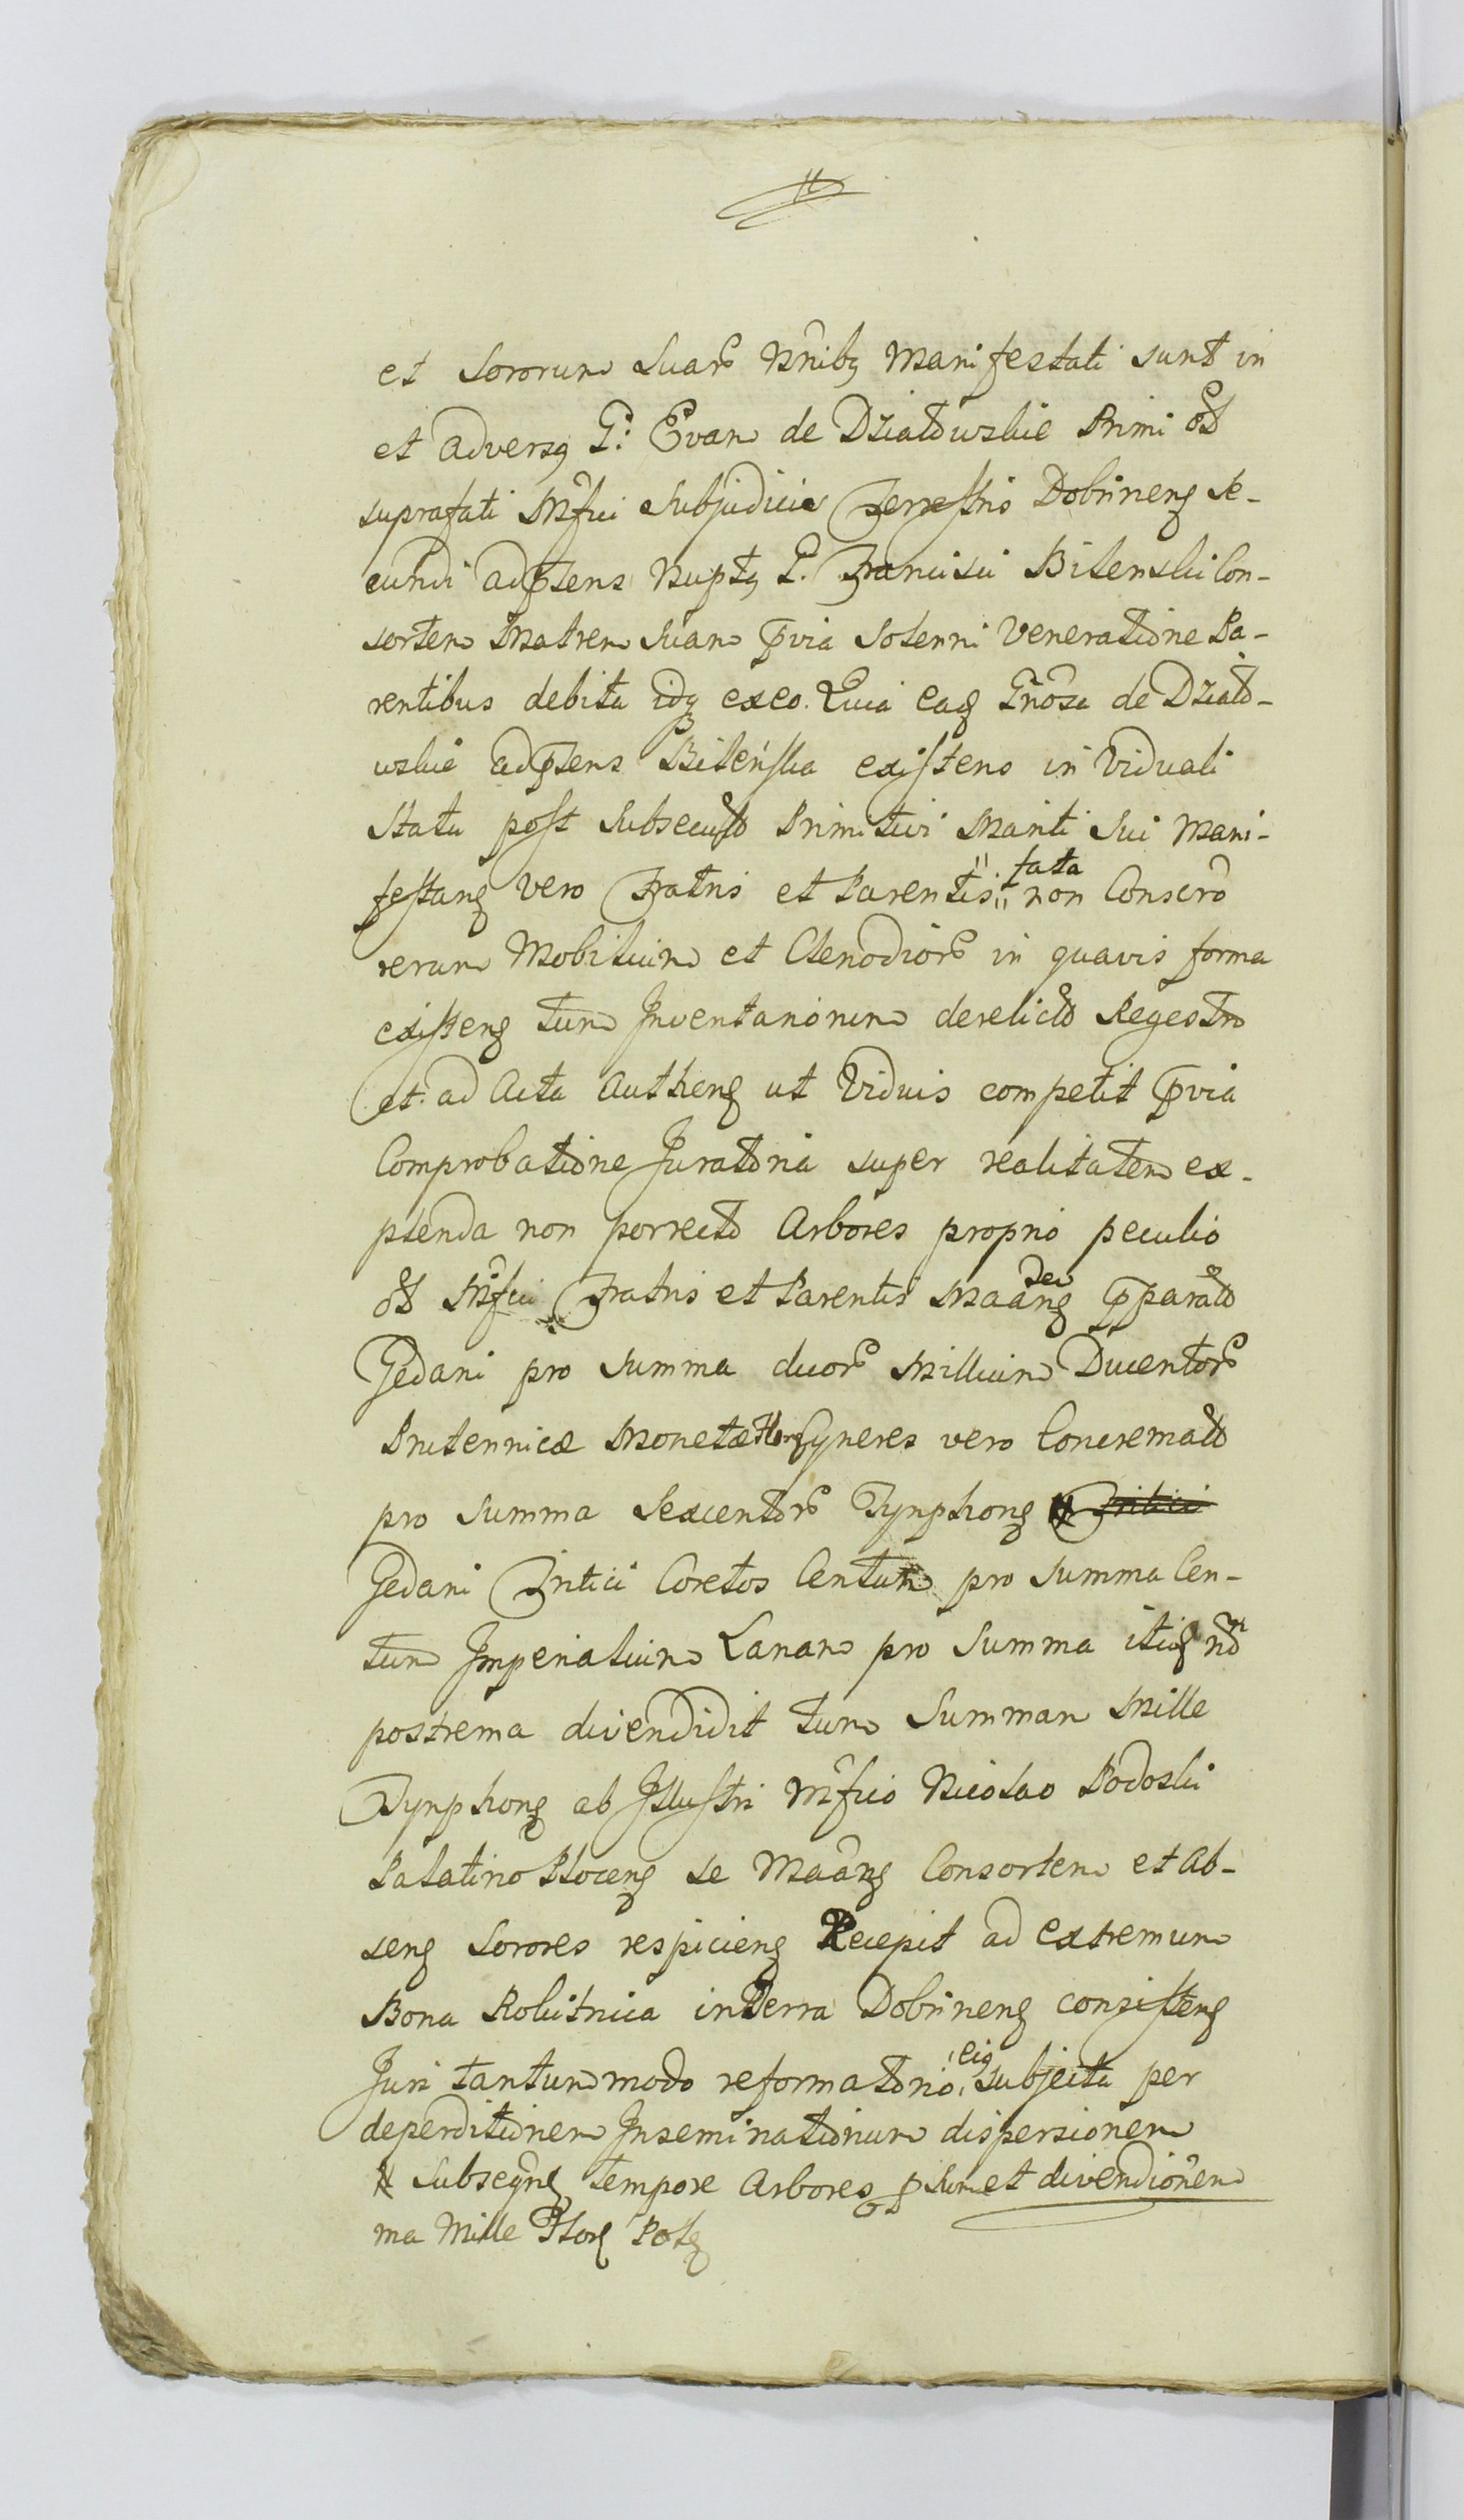 et Sororum Suar Nnibq Manifestati sunt in
et adversq G: Evam de Działowskie Primi od
suprafati Mfici Subjudicis Terrestris Dobrinens Se-
cundi adpsens Nuptq G. Francisci Bilenski Con-
sortem Matrem Suam pvia Solenni Veneratione Pa-
rentibus debita idq exeo. Quia ead Gnosa de Działo-
wskie adpsens Bileńska existens in Viduali
Statu post Subsecuto Primitivi Mariti Sui Mani-
festans vero Fratris et Parentis fata non Conscro
rerum Mobilium et Clenodior in quavis forma
existens tum Inventariorum derelicto Regestro
et ad Acta Authens ut Viduis competit pvia
Comprobatione Juratoria super realitatem ex-
plenda non porrecto Arbores proprio peculio
od Mfici Fratris et Parentis Maanq Den pparato
Gedani pro Summa duor Millium Ducentor
Prutennicæ Monetæ Flor Cyneres vero Concremato
pro Summa Sexcentor Tynphons
Gedani Tritici Coretos Centum pro Summa Cen-
tum Imperialium Lanam pro Summa itidq no
postrema divendidit tum Summam Mille
Tynphons ab Illustri Mfico Nicolao Podoski
Palatino Plocens se Maanq Consortem et Ab-
sens Sorores respiciens Recepit ad extremum
Bona Rokitnica in Terra Dobrinens consistens
Juri tantummodo reformatorio eiq subjecta per
deperditionem Inseminationum dispersionem
Subseqnq tempore Arbores p Sum et divendionem
ma Mille Flor Polq